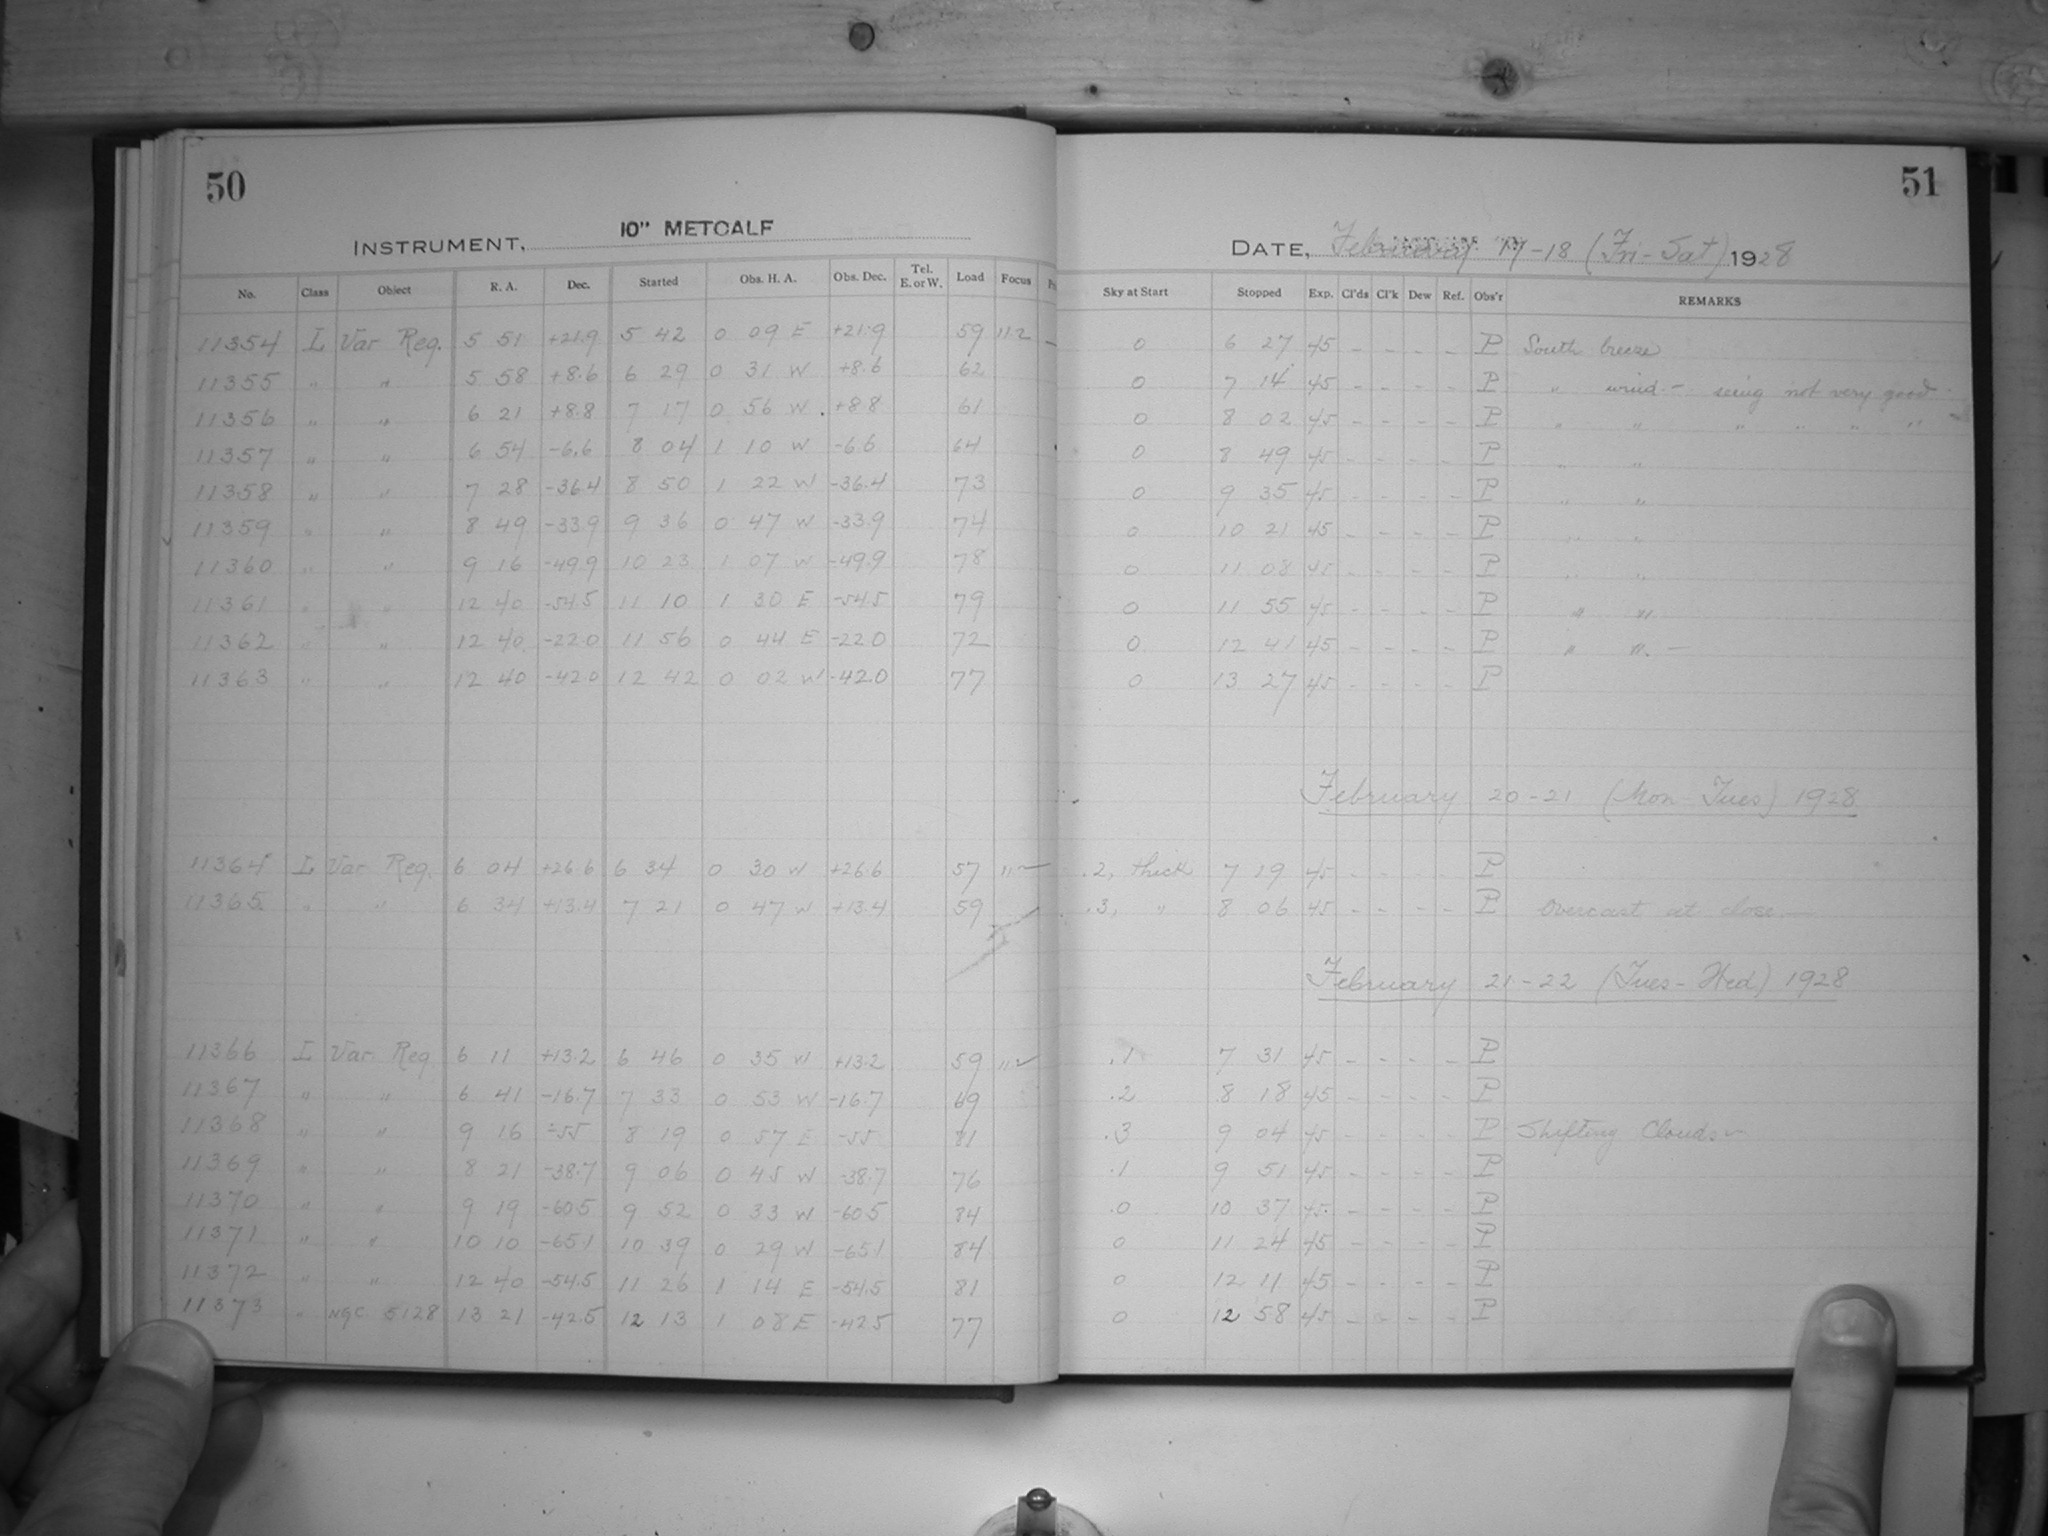 50
INSTRUMENT, 10" METCALF
No. Class Object R. A. Dec. Started Obs. H. A. Obs. Dec. Tel. E. or W. Load Focus
11354 L Var Reg. 5 51 +21.9 5 42 0 09 E +21.9 59 11.2
11355 " " 5 58 +8.6 6 29 0 31 W +8.6 62
11356 " " 6 21 +8.8 7 17 0 56 W +8.8 61
11357 " " 6 54 -6.6 8 04 1 10 W -6.6 64
11358 " " 7 28 -36.4 8 50 1 22 W -36.4 73
11359 " " 8 49 -33.9 9 36 0 47 W -33.9 74
11360 " " 9 16 -49.9 10 23 1 07 W -49.9 78
11361 " " 12 40 -54.5 11 10 1 30 E -54.5 79
11362 " " 12 40 -22.0 11 56 0 44 E -22.0 72
11363 " " 12 40 -42.0 12 42 0 02 W -42.0 77
11364 L Var Reg. 6 04 +26.6 6 34 0 30 W +26.6 57
11365 " " 6 34 +13.4 7 21 0 47 W +13.4 59
11366 L Var. Reg 6 11 +13.2 6 46 0 35 W +13.2 59
11367 " " 6 41 -16.7 7 33 0 53 W -16.7 69
11368 " " 9 16 -55 8 19 0 57 E -55 81
11369 " " 8 21 -38.7 9 06 0 45 W -38.7 76
11370 " " 9 19 -60.5 9 52 0 33 W -60.5 84
11371 " " 10 10 -65.1 10 39 0 29 W -65.1 84
11372 " " 12 40 -54.5 11 26 1 14 E -54.5 81
11373 " NGC 5128 13 21 -42.5 12 13 1 08 E -42.5 77
51
DATE, February 17-18 (Fri-Sat) 1928
Sky at Start Stopped Exp. Cl'ds Cl'k Dew Ref. Obs'r REMARKS
0 6 27 45 - - - - P South breeze
0 7 14 45 - - - - P " wind - seeing not very good
0 8 02 45 - - - - P " " " " " "
0 8 49 45 - - - - P " "
0 9 35 45 - - - - P " "
0 10 21 45 - - - - P " "
0 11 08 45 - - - - P " "
0 11 55 45 - - - - P " "
0 12 41 45 - - - - P " " -
0 13 27 45 - - - - P
February 20-21 (Mon-Tues) 1928
.2, thick 7 19 45 - - - - P
.3, " 8 06 45 - - - - P Overcast at close.
February 21-22 (Tues-Wed) 1928
.1 7 31 45 - - - - P
.2 8 18 45 - - - - P
.3 9 04 45 - - - - P Shifting Clouds
.1 9 51 45 - - - - P
.0 10 37 45 - - - - P
0 11 24 45 - - - - P
0 12 11 45 - - - - P
0 12 58 45 - - - - P